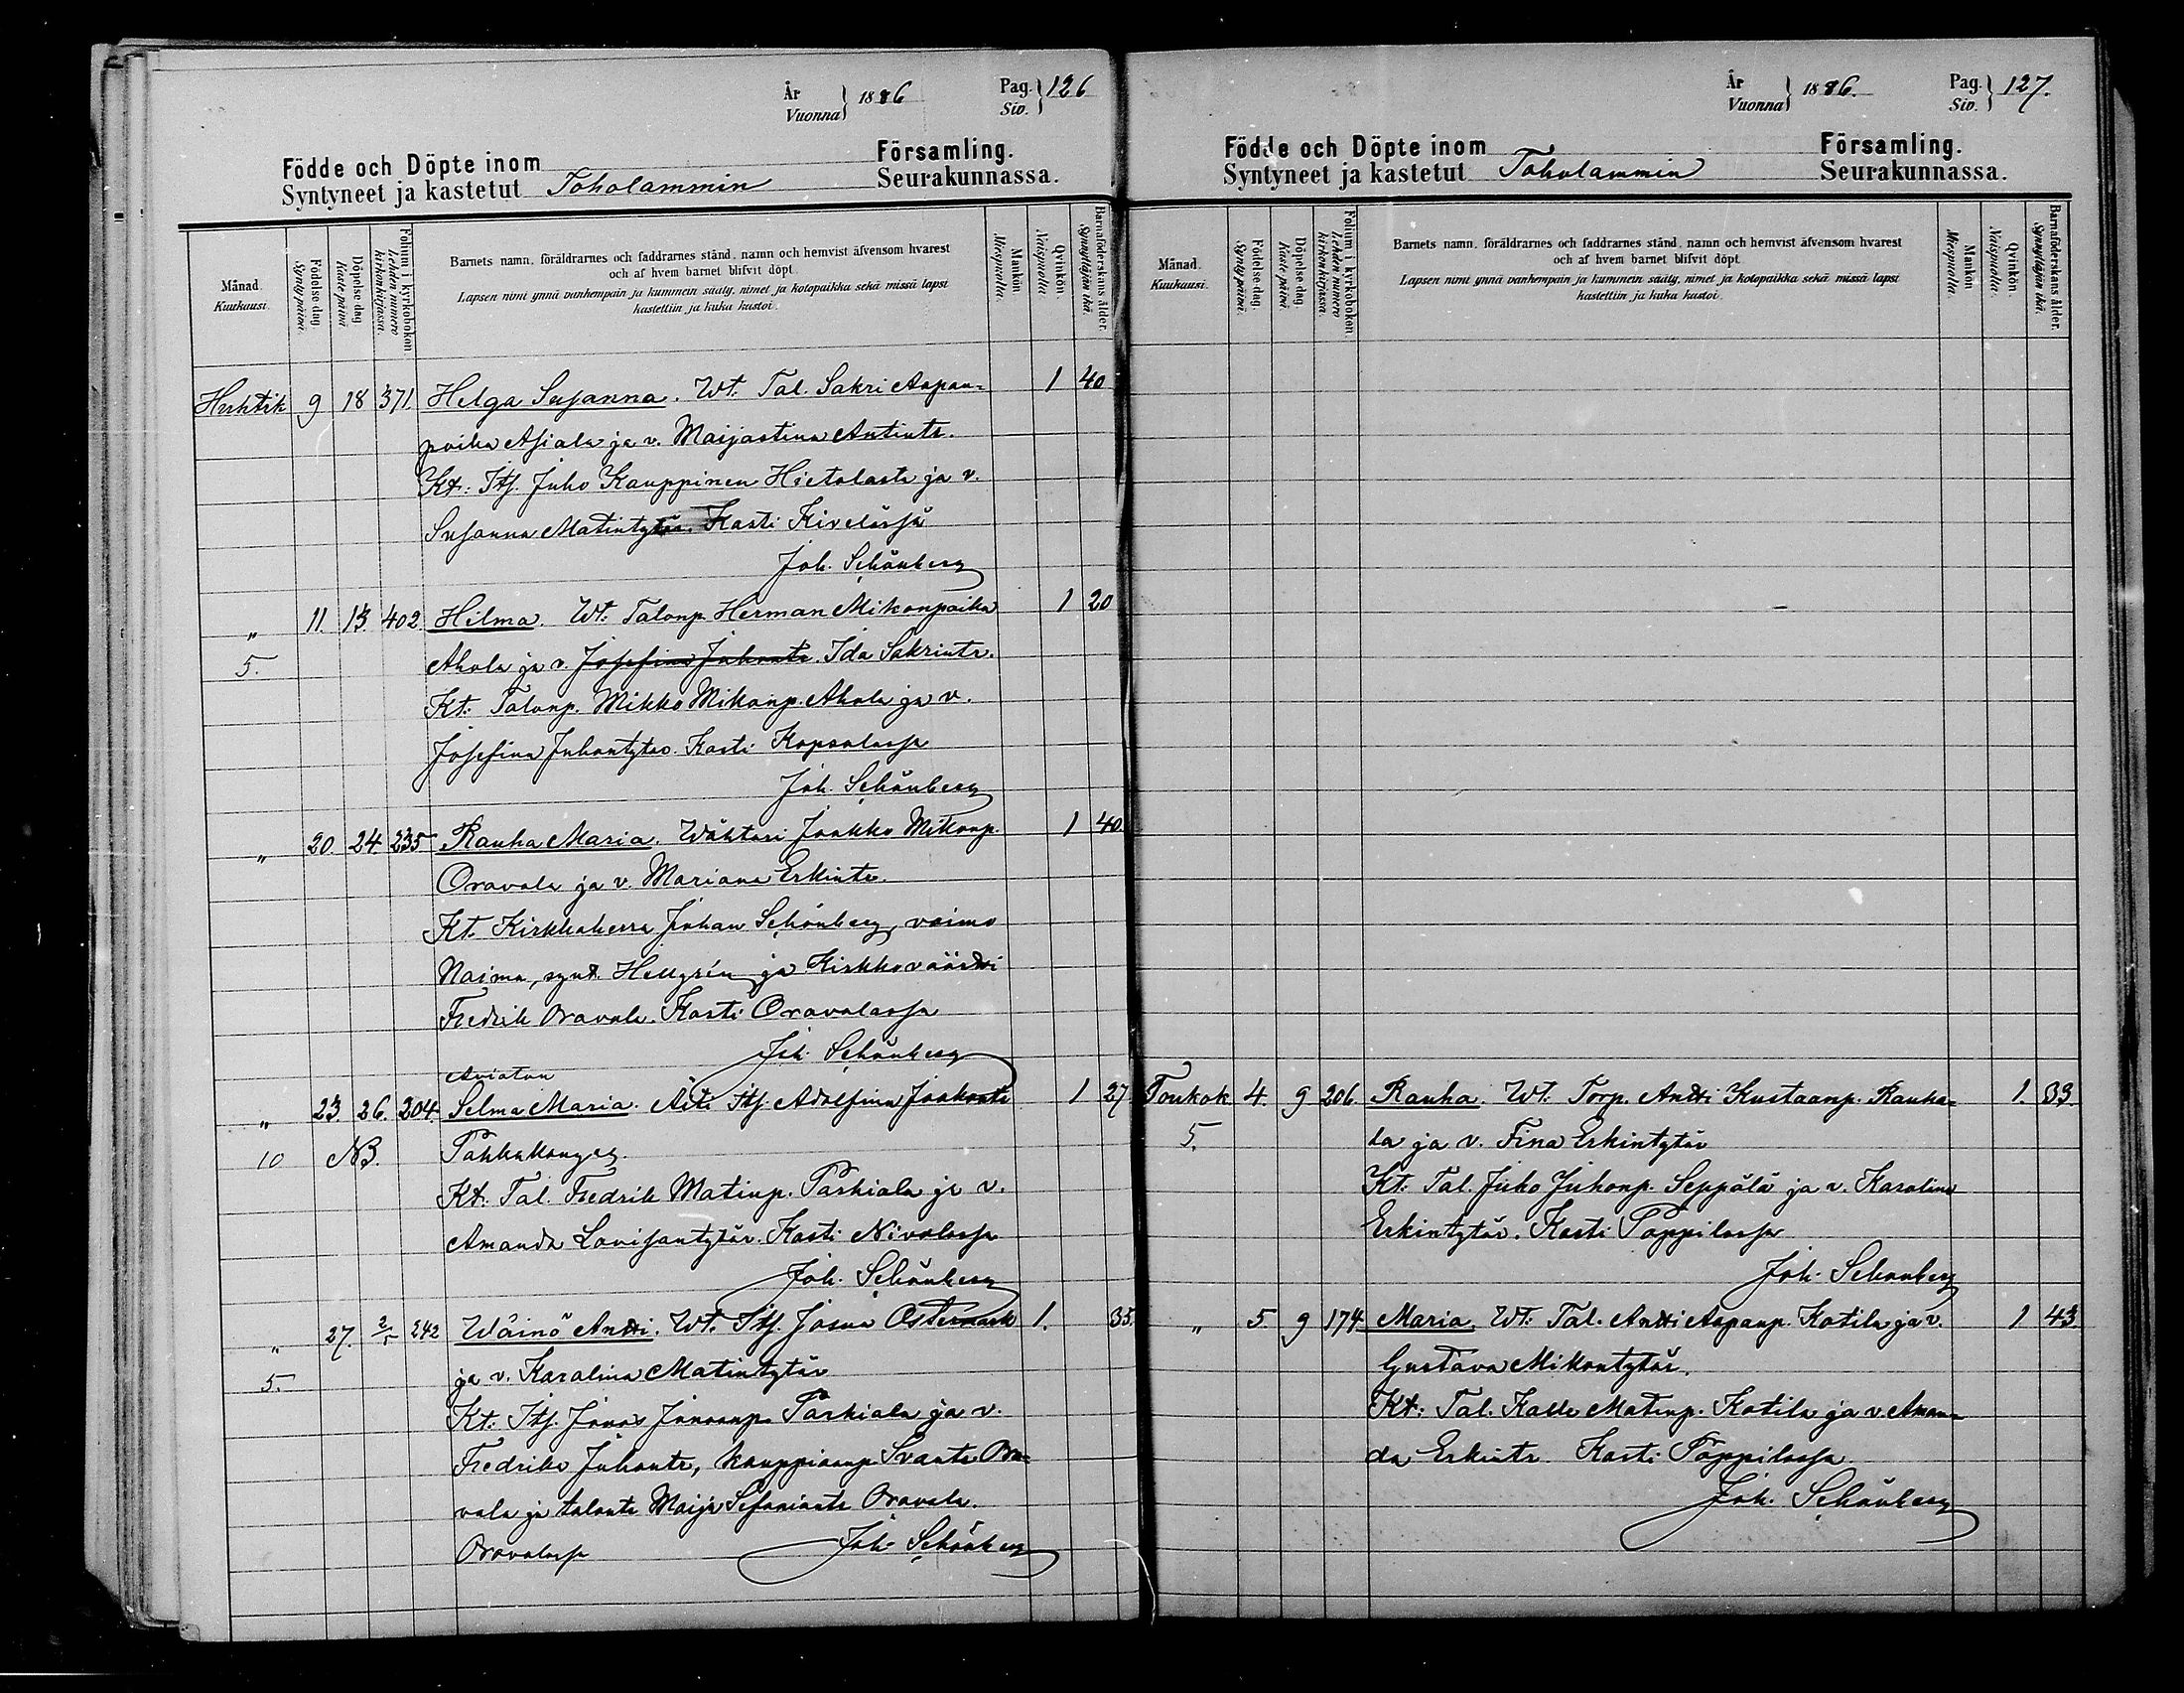 År
Vuonna } 1886
Pag.
Siv. } 126
Födde och Döpte inom
Syntyneet ja kastetut Toholammin
Församling.
Seurakunnassa.
Månad.
Kuukausi.
Födelse dag.
Synty päivä.
Döpelse dag.
Kaste päivä.
Folium i kyrkoboken
Lehden numero
kirkonkirjassa.
Barnets namn, föräldrarnes och faddrarnes stånd, namn och hemvist äfvensom hvarest
och af hvem barnet blifvit döpt.
Lapsen nimi ynnä vanhempain ja kummein sääty, nimet ja kotopaikka sekä missä lapsi
kastettiin ja kuka kastoi.
Mankön.
Miespuolia.
Qvinkön.
Naispuolia.
Barnaföderskans ålder.
Synnyttäjän ikä.
Huhtik 9 18 371. Helga Susanna. Wt. Tal. Sakri Aapan= 1 40
poika Asiala ja v. Maijastina Antintr.
Kt: Its. Juho Kauppinen Hietalasta ja v.
Susanna Matintytär. Kasti Kivelässä
Joh. Schönberg
„ 11. 13. 402. Hilma. Wt. Talonp. Herman Mikonpoika 1 20
5. Ahola ja v. Josefina Juhontr. Ida Sakrintr.
Kt: Talonp. Mikko Mikonp. Ahola ja v.
Josefina Juhontytär. Kasti Kopsalassa
Joh. Schönberg
„ 20. 24. 235 Rauha Maria. Wähtäri Jaakko Mikonp. 1 40.
Oravala ja v. Mariana Erkintr.
Kt. Kirkkoherra Johan Schönberg, vaimo
Naima, synt. Hellgrén ja Kirkkoväärti
Fredrik Oravala. Kasti Oravalassa
Joh. Schönberg
Avioton
„ 23. 26. 204. Selma Maria. Äiti Its. Adolfina Jaakontr 1 27
10 NB. Pahkakangas.
Kt: Tal. Fredrik Matinp. Parhiala ja v.
Amanda Lovisantytär. Kasti Nivalassa
Joh. Schönberg
„ 27. 2/5 242 Wäinö Antti. Wt. Its. Josua Ostermark 1. 35.
5. ja v. Karolina Matintytär
Kt: Its. Jonas Jonaanp. Parhiala ja v.
Fredrika Juhontr, Kauppiaanp. Svante Ora=
vala ja talontr Maija Sefaniantr Oravala.
Oravalassa Joh. Schönberg
År
Vuonna } 1886.
Pag.
Siv. } 127.
Födde och Döpte inom
Syntyneet ja kastetut Toholammin
Församling.
Seurakunnassa.
Månad.
Kuukausi.
Födelse dag.
Synty päivä.
Döpelse dag.
Kaste päivä.
Folium i kyrkoboken.
Lehden numero
kirkonkirjassa.
Barnets namn, föräldrarnes och faddrarnes stånd, namn och hemvist äfvensom hvarest
och af hvem barnet blifvit döpt.
Lapsen nimi ynnä vanhempain ja kummein sääty, nimet ja kotopaikka sekä missä lapsi
kastettiin ja kuka kastoi.
Mankön.
Miespuolia.
Qvinkön.
Naispuolia.
Barnaföderskans ålder.
Synnyttäjän ikä.
Toukok 4. 9 206. Rauha. Wt. Torp. Antti Kustaanp. Rauha= 1. 33.
5. la ja v. Fina Erkintytär
Kt: Tal. Juho Juhonp. Seppälä ja v. Karolina
Erkintytär. Kasti Pappilassa
Joh. Schönberg
„ 5. 9 174 Maria. Wt: Tal. Antti Aapanp. Kotila ja v. 1 43.
Gustava Mikontytär.
Kt: Tal. Kalle Matinp. Kotila ja v. Aman=
da Erkintr. Kasti Pappilassa
Joh. Schönberg